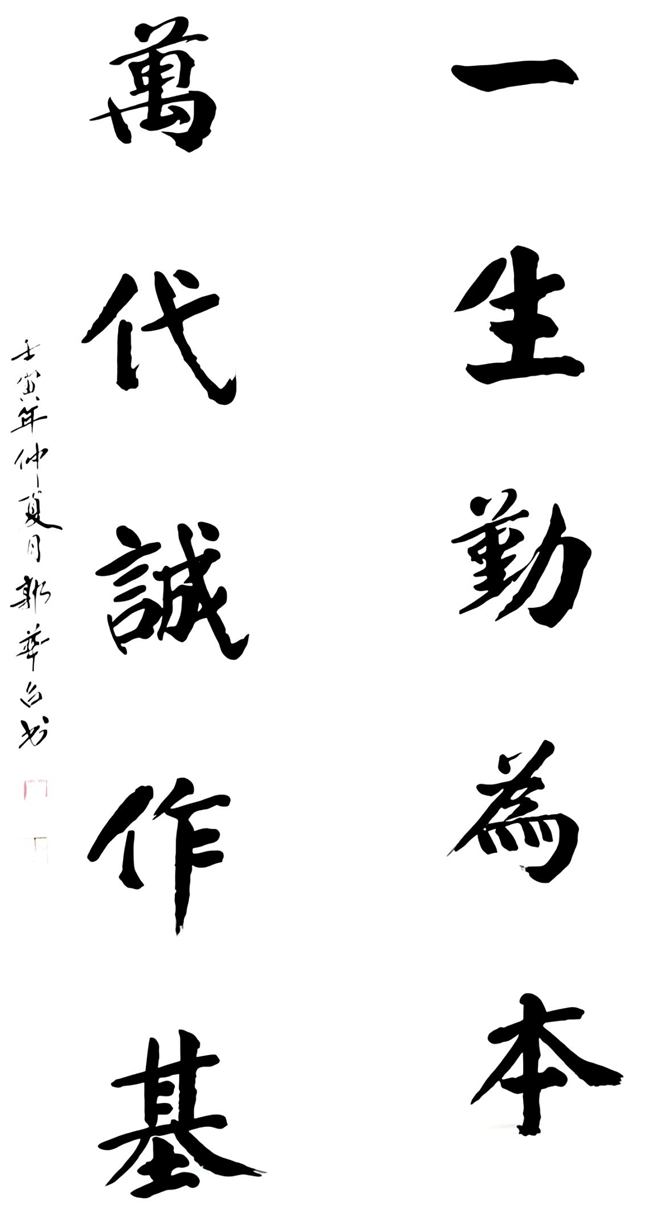 一生勤為本
萬代誠作基
壬寅年仲夏月郭華台书